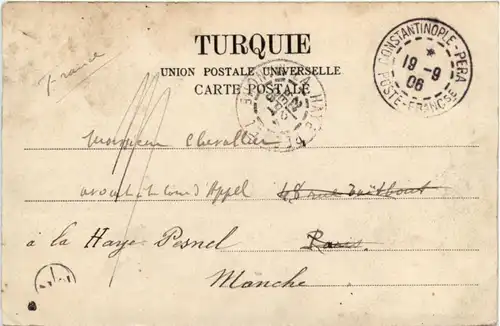 France
TURQUIE
UNION POSTALE UNIVERSELLE
CARTE POSTALE
CONSTANTINOPLE-PERA
19 -9
06
POSTE-FRANCSE
Monsieur Chevallier
avocat et Cour d'Appel 48 rue
à la Haye Pesnel Paris
Manche